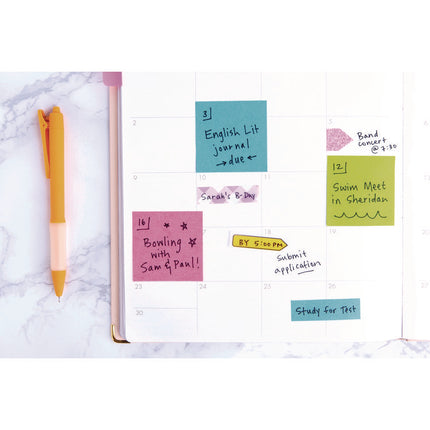 2
3
English Lit
journal
due
4
5
Band
concert
@ 7:30
12
Swim Meet
in Sheridan
9
10
11
Sarah's B-Day
16
Bowling
with
Sam & Paul!
17
18
BY 5:00 PM
Submit
application
19
23
24
25
26
Study for Test
30